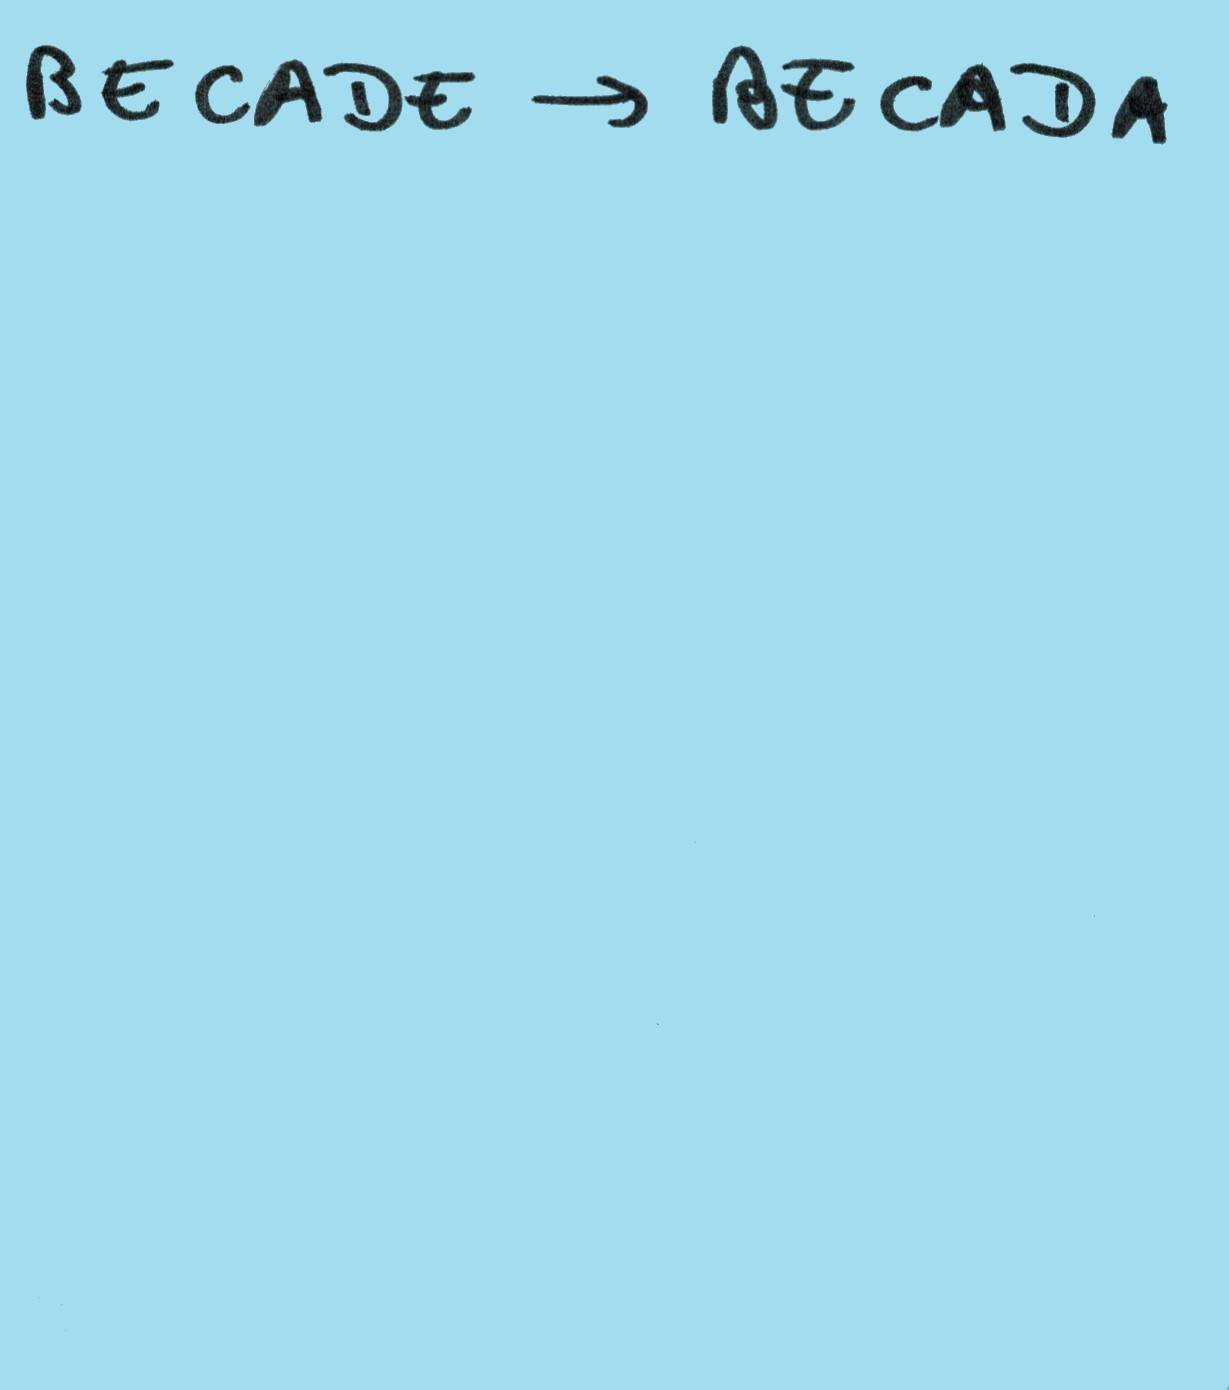 BECADE → BECADA